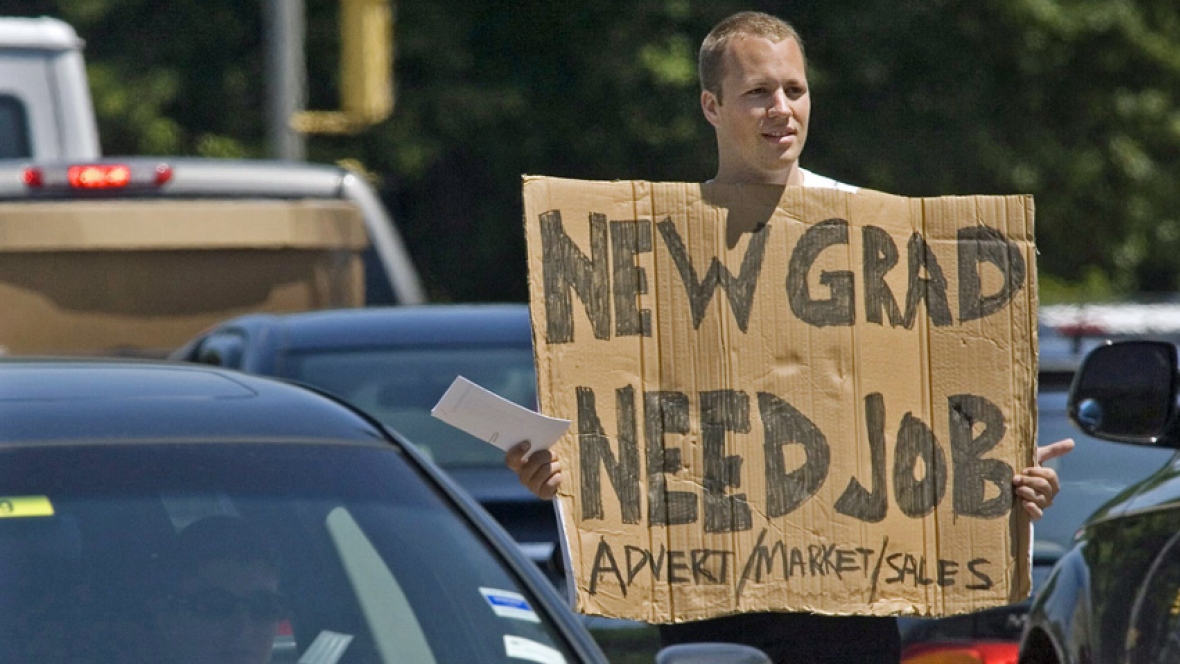 NEW GRAD
NEED JOB
ADVERT/MARKET/SALES